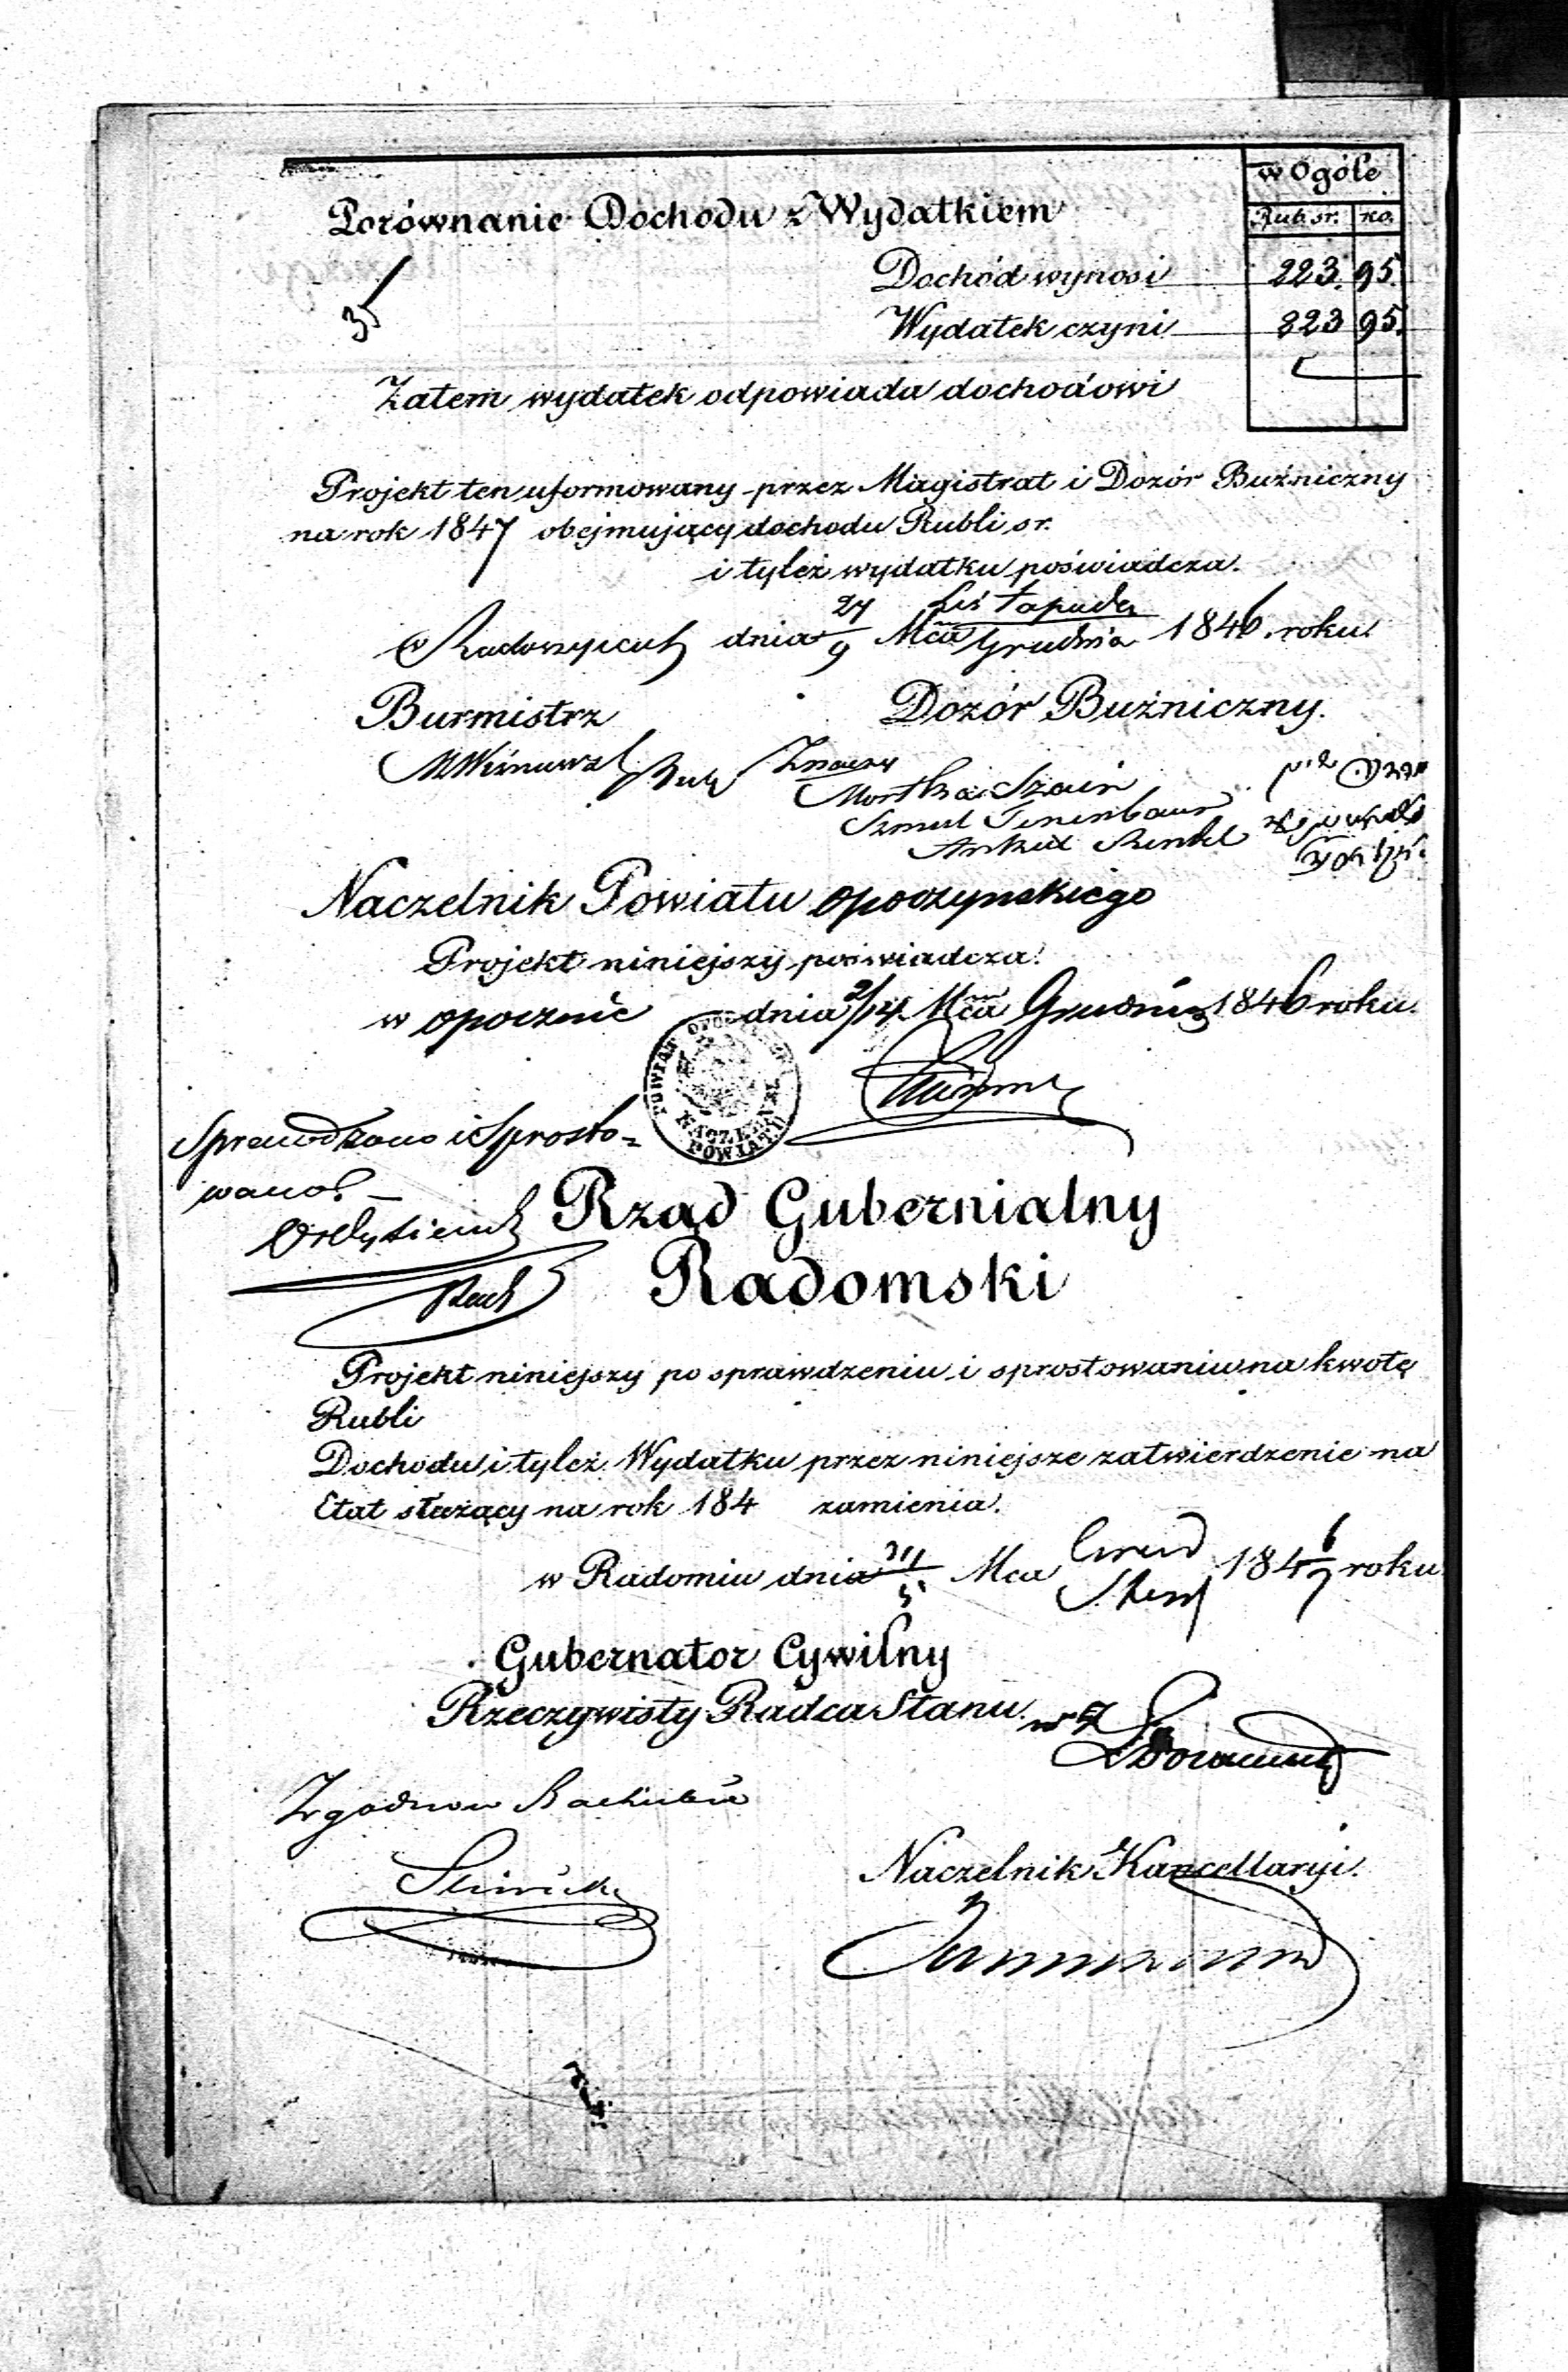 w Ogóle
Rub sr. ko.
Porównanie Dochodu z Wydatkiem
Dochód wynosi 223. 95.
Wydatek czyni 223 95.
Zatem wydatek odpowiada dochodowi
Projekt ten uformowany przez Magistrat i Dozór Buźniczny
na rok 1847 obejmujący dochodu Rubli sr.
i tyleż wydatku poświadcza.
w Radoszycach dnia 27/9 Mca Listopada/Grudnia 1846. roku.
Burmistrz Dozór Buźniczny.
Szmul Tenenbaum
Naczelnik Powiatu Opoczyńskiego
Projekt niniejszy poświadcza.
w Opocznie dnia 2/14 Mca Grudnia 1846 roku.
POWIAT OPOCZYŃSKI NACZELNIK POWIATU
Sprawdzono i Sprosto=
wano. —
Rząd Gubernialny
Radomski
Projekt niniejszy po sprawdzeniu i sprostowaniu na kwotę
Rubli
Dochodu i tyleż Wydatku przez niniejsze zatwierdzenie na
Etat służący na rok 184 zamienia.
w Radomiu dnia Mca 184 6/7 roku
Gubernator Cywilny
Rzeczywisty Radca Stanu.
Naczelnik Kancellaryi.